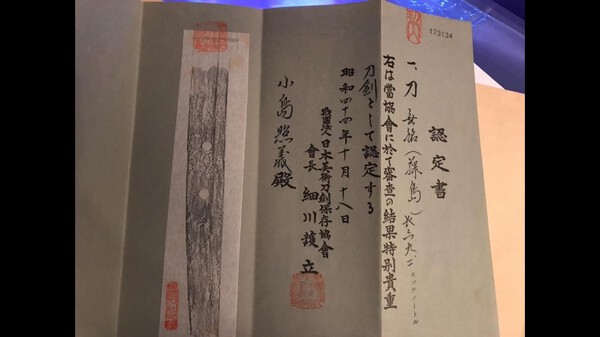 173134
認定書
一、刀 無銘(藤島)長六九、二センチメートル
右は當協會に於て審査の結果特別貴重
刀劍として認定する
昭和四十四年十月十八日
財團法人日本美術刀劍保存協會
會長 細川護立
小島照義殿